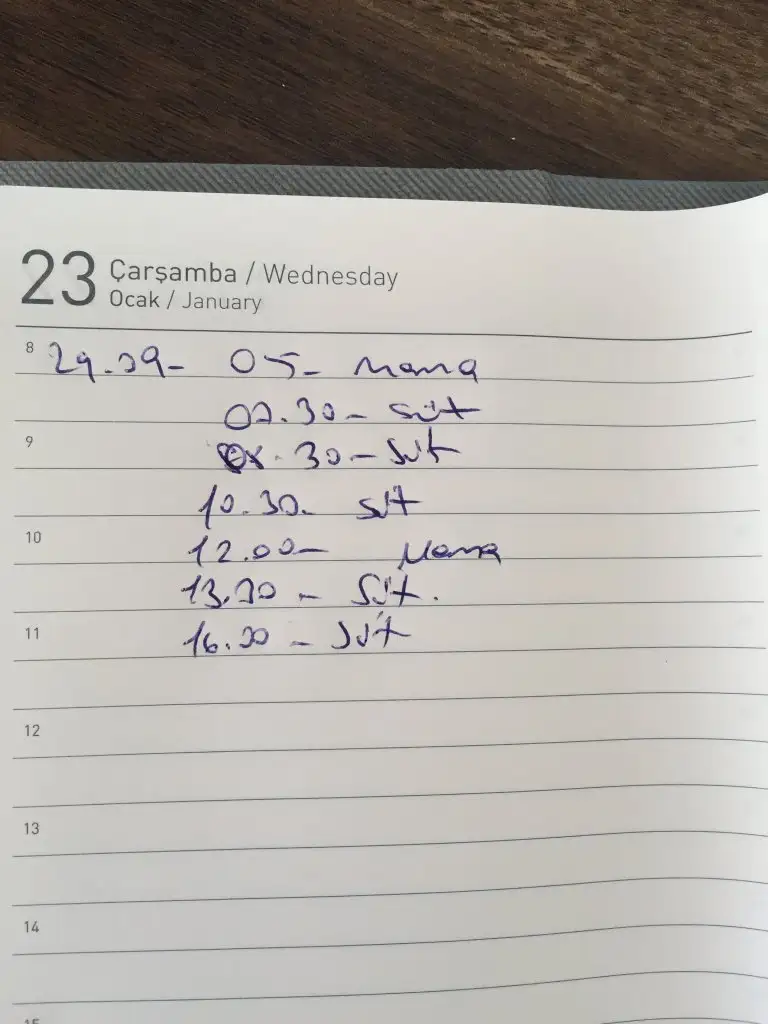 23 Çarşamba / Wednesday
Ocak / January
8 29.09- 05- Mama
07.30- süt
9 08.30- Süt
10.30- süt
10 12.00- Mama
13.30 - Süt.
11 16.00 - Süt
12
13
14
15